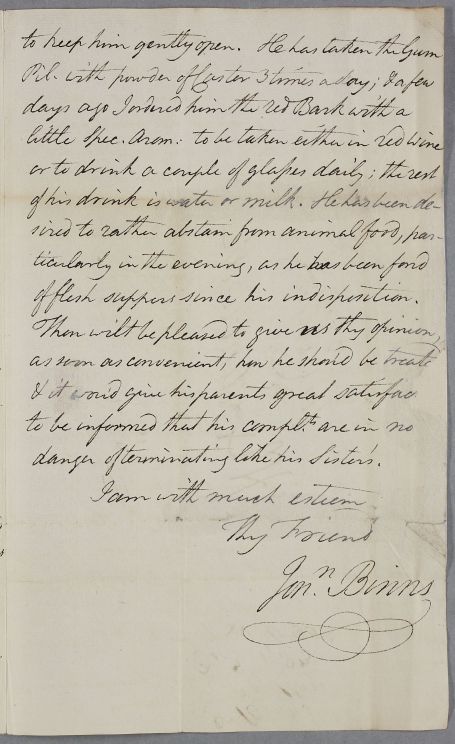 to keep him gently open. He has taken the Gum
Pil. with powder of Castor 3 times a day; & a few
days ago I ordered him the red Bark with a
little Spec. Arom: to be taken either in red Wine
or to drink a couple of glasses daily; the rest
of his drink is water or milk. He has been de-
sired to rather abstain from animal food, par-
ticularly in the evening, as he has been fond
of flesh suppers since his indisposition.
Thou wilt be pleased to give us thy opinion,
as soon as convenient, how he should be treate
& it woud give his parents great satisfac
to be informed that his complts. are in no
danger of terminating like his Sister's.
I am with much esteem
Thy Friend
Jonn. Binns